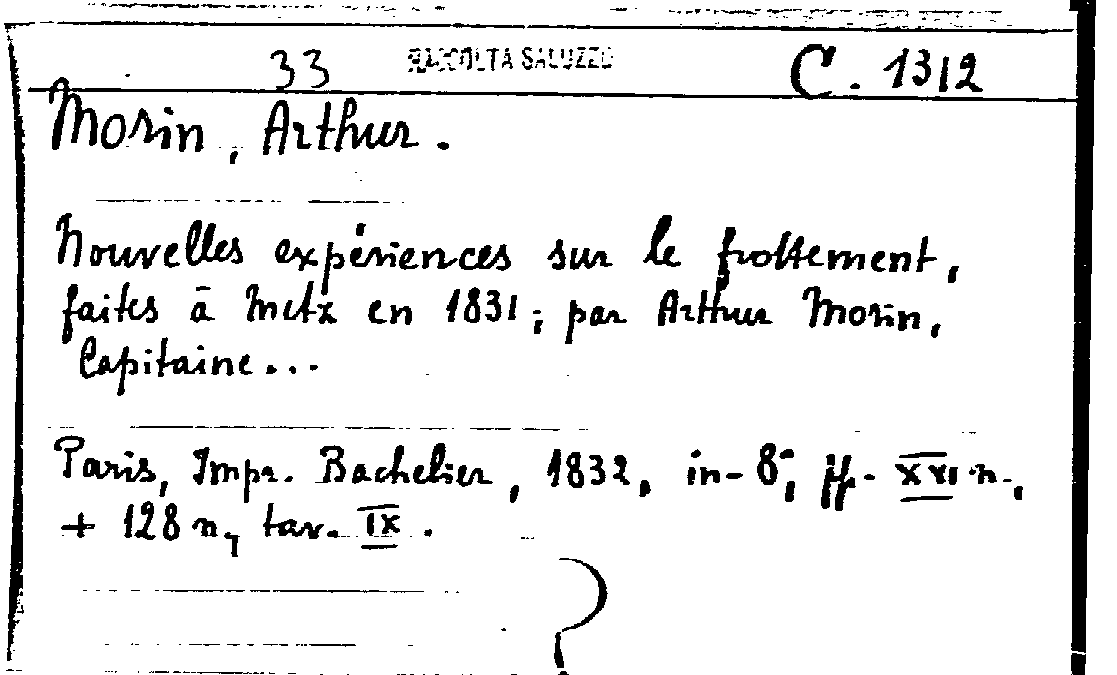 33 RACCOLTA SALUZZO C. 1312
Morin, Arthur.
Nouvelles expériences sur le frottement,
faites à Metz en 1831; par Arthur Morin,
Capitaine...
Paris, Impr. Bachelier, 1832, in-8°, ff. XXI n.,
+ 128 n, tav. IX.
?